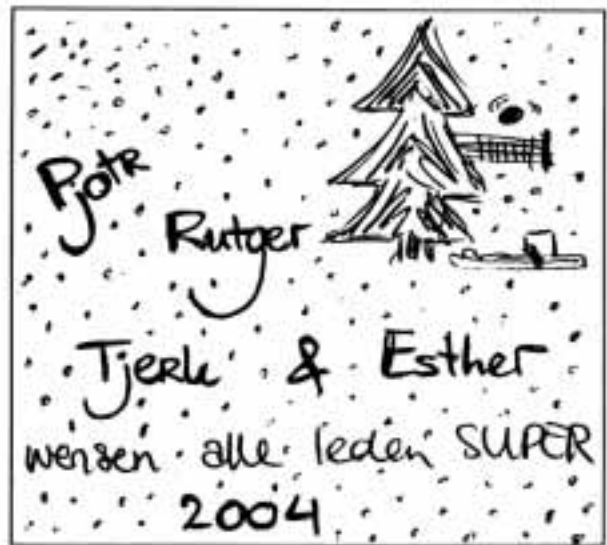 Pjotr
Rutger
Tjerk & Esther
wensen alle leden SUPER
2004